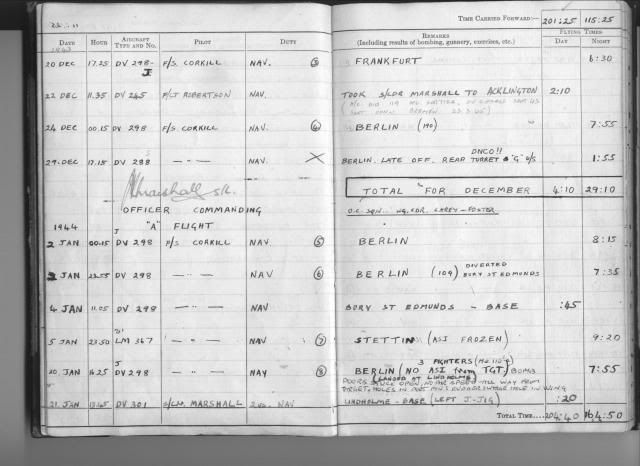 TIME CARRIED FORWARD:— 201:25 115:25
DATE HOUR AIRCRAFT TYPE AND NO. PILOT DUTY REMARKS (Including results of bombing, gunnery, exercises, etc.) FLYING TIMES DAY NIGHT
1943
20 DEC 17.25 DV 298- J F/S. CORKILL NAV. 3 FRANKFURT 6:30
22 DEC 11.35 DV 245 F/LT ROBERTSON NAV. TOOK S/LDR MARSHALL TO ACKLINGTON 2:10
24 DEC 00.15 DV 298 F/S. CORKILL NAV. 4 BERLIN 7:55
29. DEC 17.15 DV 288 — " — NAV. X DNCO!!
BERLIN. LATE OFF. REAR TURRET & "G" U/S 1:55
Marshall S/L.
OFFICER COMMANDING
"A" FLIGHT
TOTAL FOR DECEMBER 4:10 29:10
O.C. SQN. WG. CDR. CAREY-FOSTER
1944
2 JAN 00.15 J DV 298 F/S CORKILL NAV 5 BERLIN 8:15
2 JAN 23.55 DV 298 — " — NAV 6 BERLIN (109) DIVERTED BURY ST EDMUNDS 7:35
4 JAN 11.05 DV 298 — " — NAV BURY ST EDMUNDS - BASE :45
5 JAN 23.50 LM 367 — " — NAV 7 STETTIN (ASI FROZEN) 9:20
20. JAN 16.25 J DV 298 — " — NAV 8 3 FIGHTERS
BERLIN (NO ASI from TGT.) BOMB 7:55
(LANDED AT LINDHOLME)
DOORS STUCK OPEN, NO AIR SPEED ALL WAY FROM
TARGET, HOLES IN HOLE IN WING
21. JAN DV 301 S/LDR. MARSHALL 2ND. NAV LINDHOLME - BASE (LEFT J-JIG) :20
TOTAL TIME.... 204:40 164:50